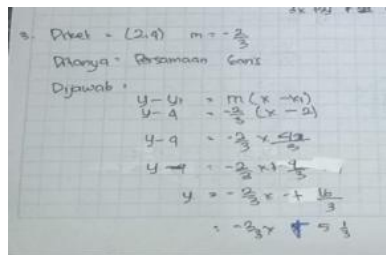 3. Diket = (2,4) m = -2/3
Ditanya = Persamaan Garis
Dijawab :
y - y₁ = m (x - x₁)
y - 4 = -2/3 (x - 2)
y - 4 = -2/3 x
y - 4 = -2/3 x + 4/3
y = -2/3 x + 16/3
= -2/3 x + 5 1/3